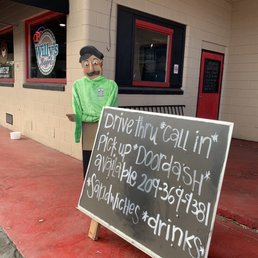 Willy's
Drive thru *call in*
Pick up *Doordash*
available 209-369-4381
*Sandwiches *drinks*